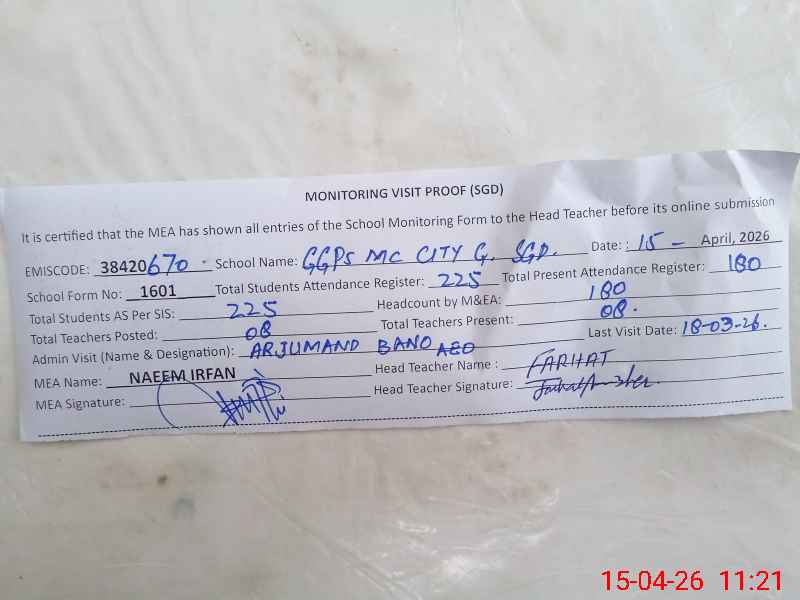 MONITORING VISIT PROOF (SGD)
It is certified that the MEA has shown all entries of the School Monitoring Form to the Head Teacher before its online submission
EMISCODE: 38420670 School Name: GGPS MC CITY G. SGD. Date: : 15 - April, 2026
School Form No: 1601 Total Students Attendance Register: 225 Total Present Attendance Register: 180
Total Students AS Per SIS: 225 Headcount by M&EA: 180
Total Teachers Posted: 08 Total Teachers Present: 08.
Admin Visit (Name & Designation): ARJUMAND BANO AEO Last Visit Date: 18-03-26.
MEA Name: NAEEM IRFAN Head Teacher Name : FARHAT
MEA Signature: Head Teacher Signature:
15-04-26 11:21